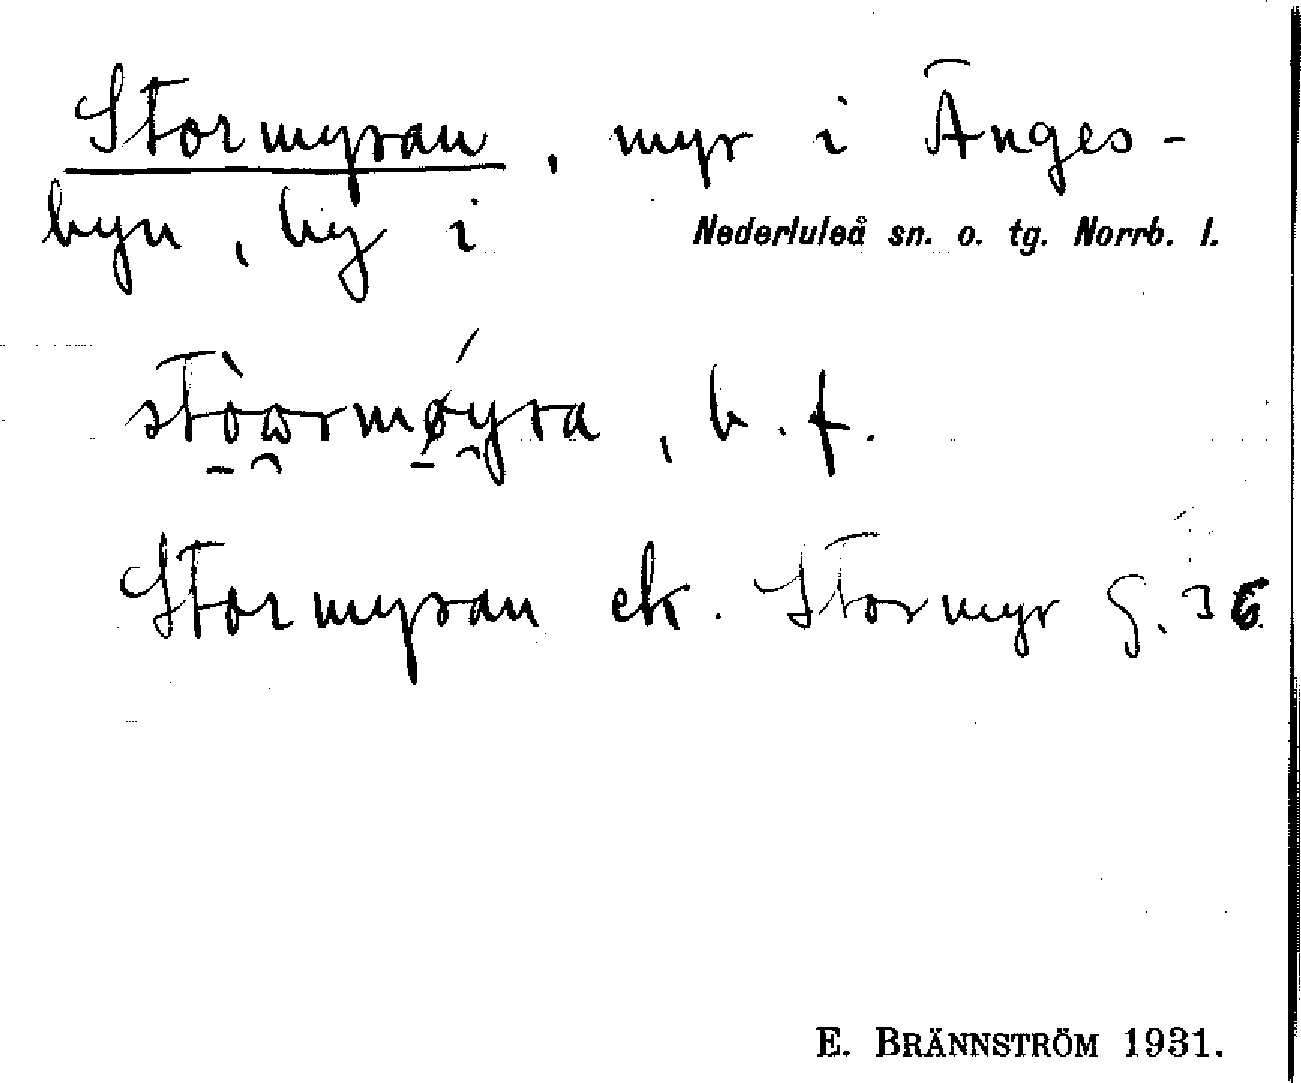 Stormyran, myr i Änges-
byn, by i Nederluleå sn. o. tg. Norrb. l.
stòɷrmǿyra, b. f.
Stormyran ek. Stormyr G. 36
E. BRÄNNSTRÖM 1931.